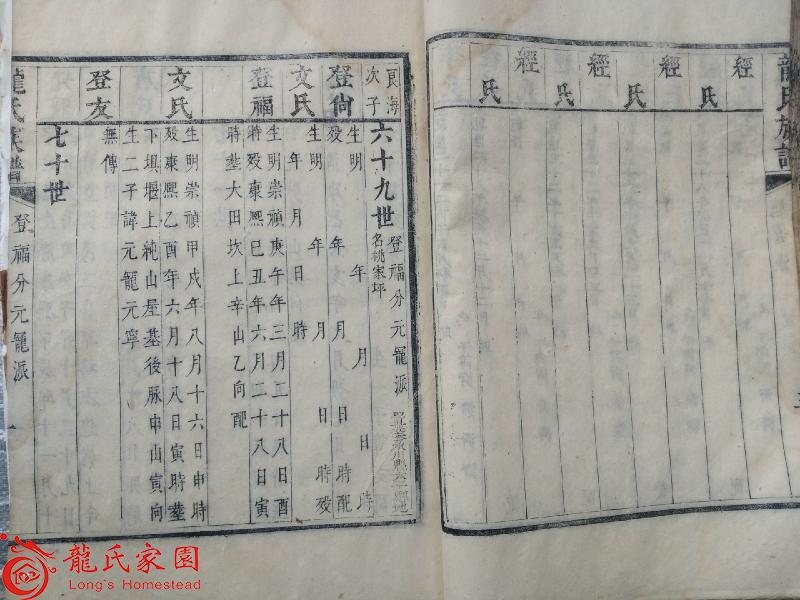 龍氏族譜
經
氏
經
氏
經
氏
經
氏
六十九世 登福分元龍派
名桃家坪
良海
次子
登尙
生明 年 月 日 時
歿 年 月 日 時配
文氏
生明 年 月 日 時歿
年 月 日 時
登福
生明崇禎庚午年三月二十八日酉
時歿康熙己丑年六月二十八日寅
時塟大田坎上辛山乙向配
文氏
生明崇禎甲戌年八月十六日申時
歿康熙乙酉年六月十八日寅時塟
下埧堰上純山屋基後脉申山寅向
生二子諱元龍元寧
登友
無傳
七十世
登福分元龍派
龍氏族譜
一
龍氏家園
Long's Homestead